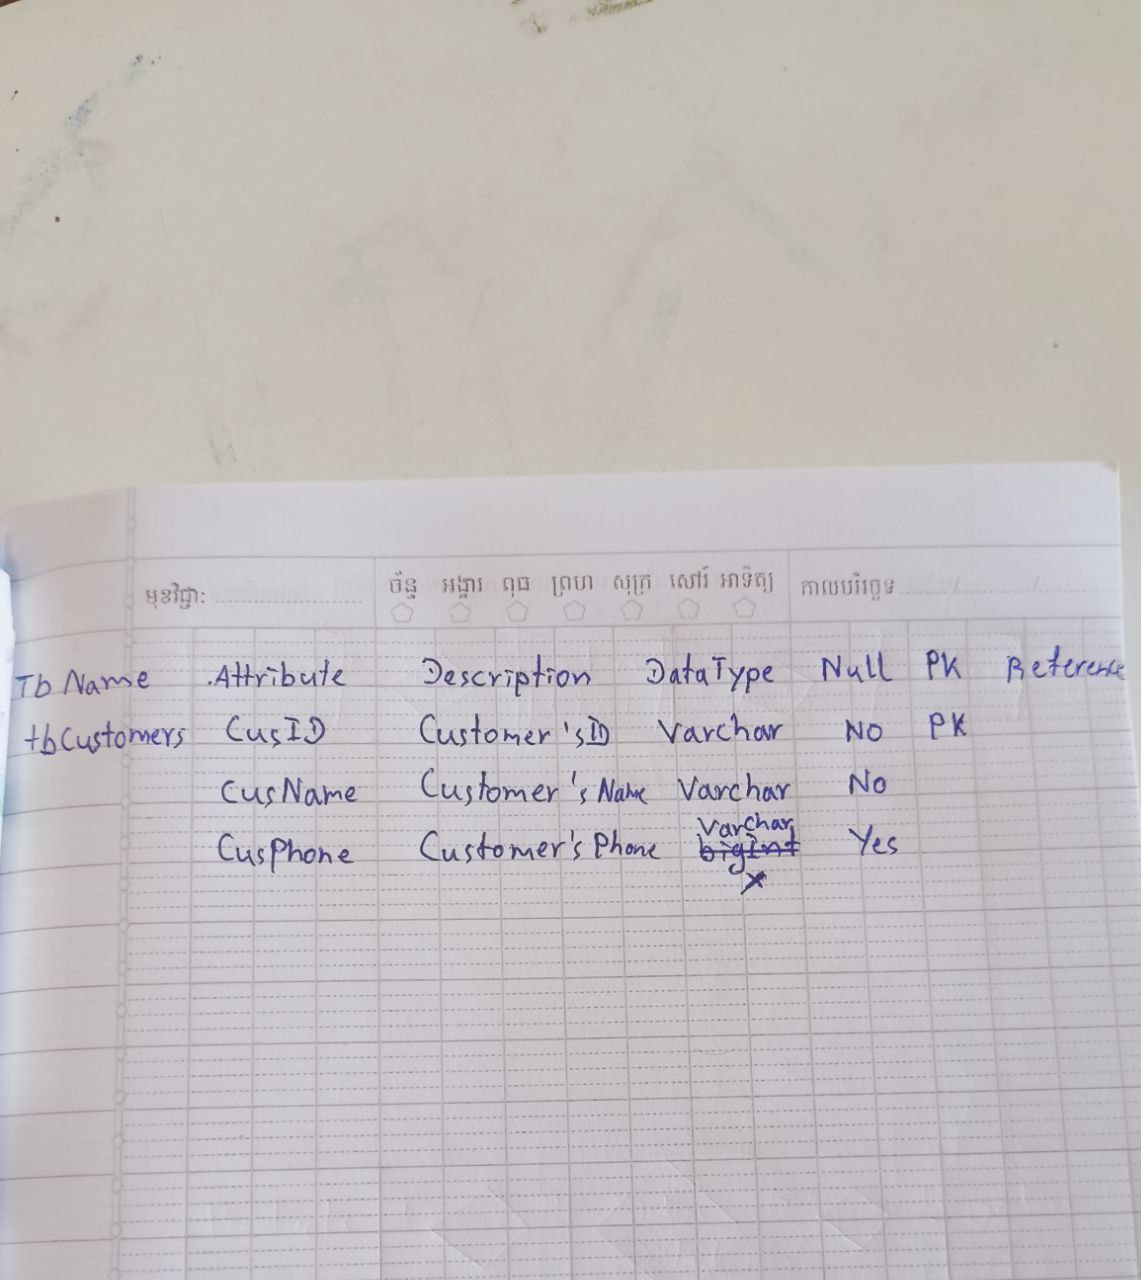 មុខវិជ្ជា: ច័ន្ទ អង្គារ ពុធ ព្រហ សុក្រ សៅរ៍ អាទិត្យ កាលបរិច្ឆេទ / /
Tb Name Attribute Description DataType Null PK Reference
tbCustomers CusID Customer's ID Varchar No PK
CusName Customer's Name Varchar No
Varchar
CusPhone Customer's Phone bigInt Yes
x